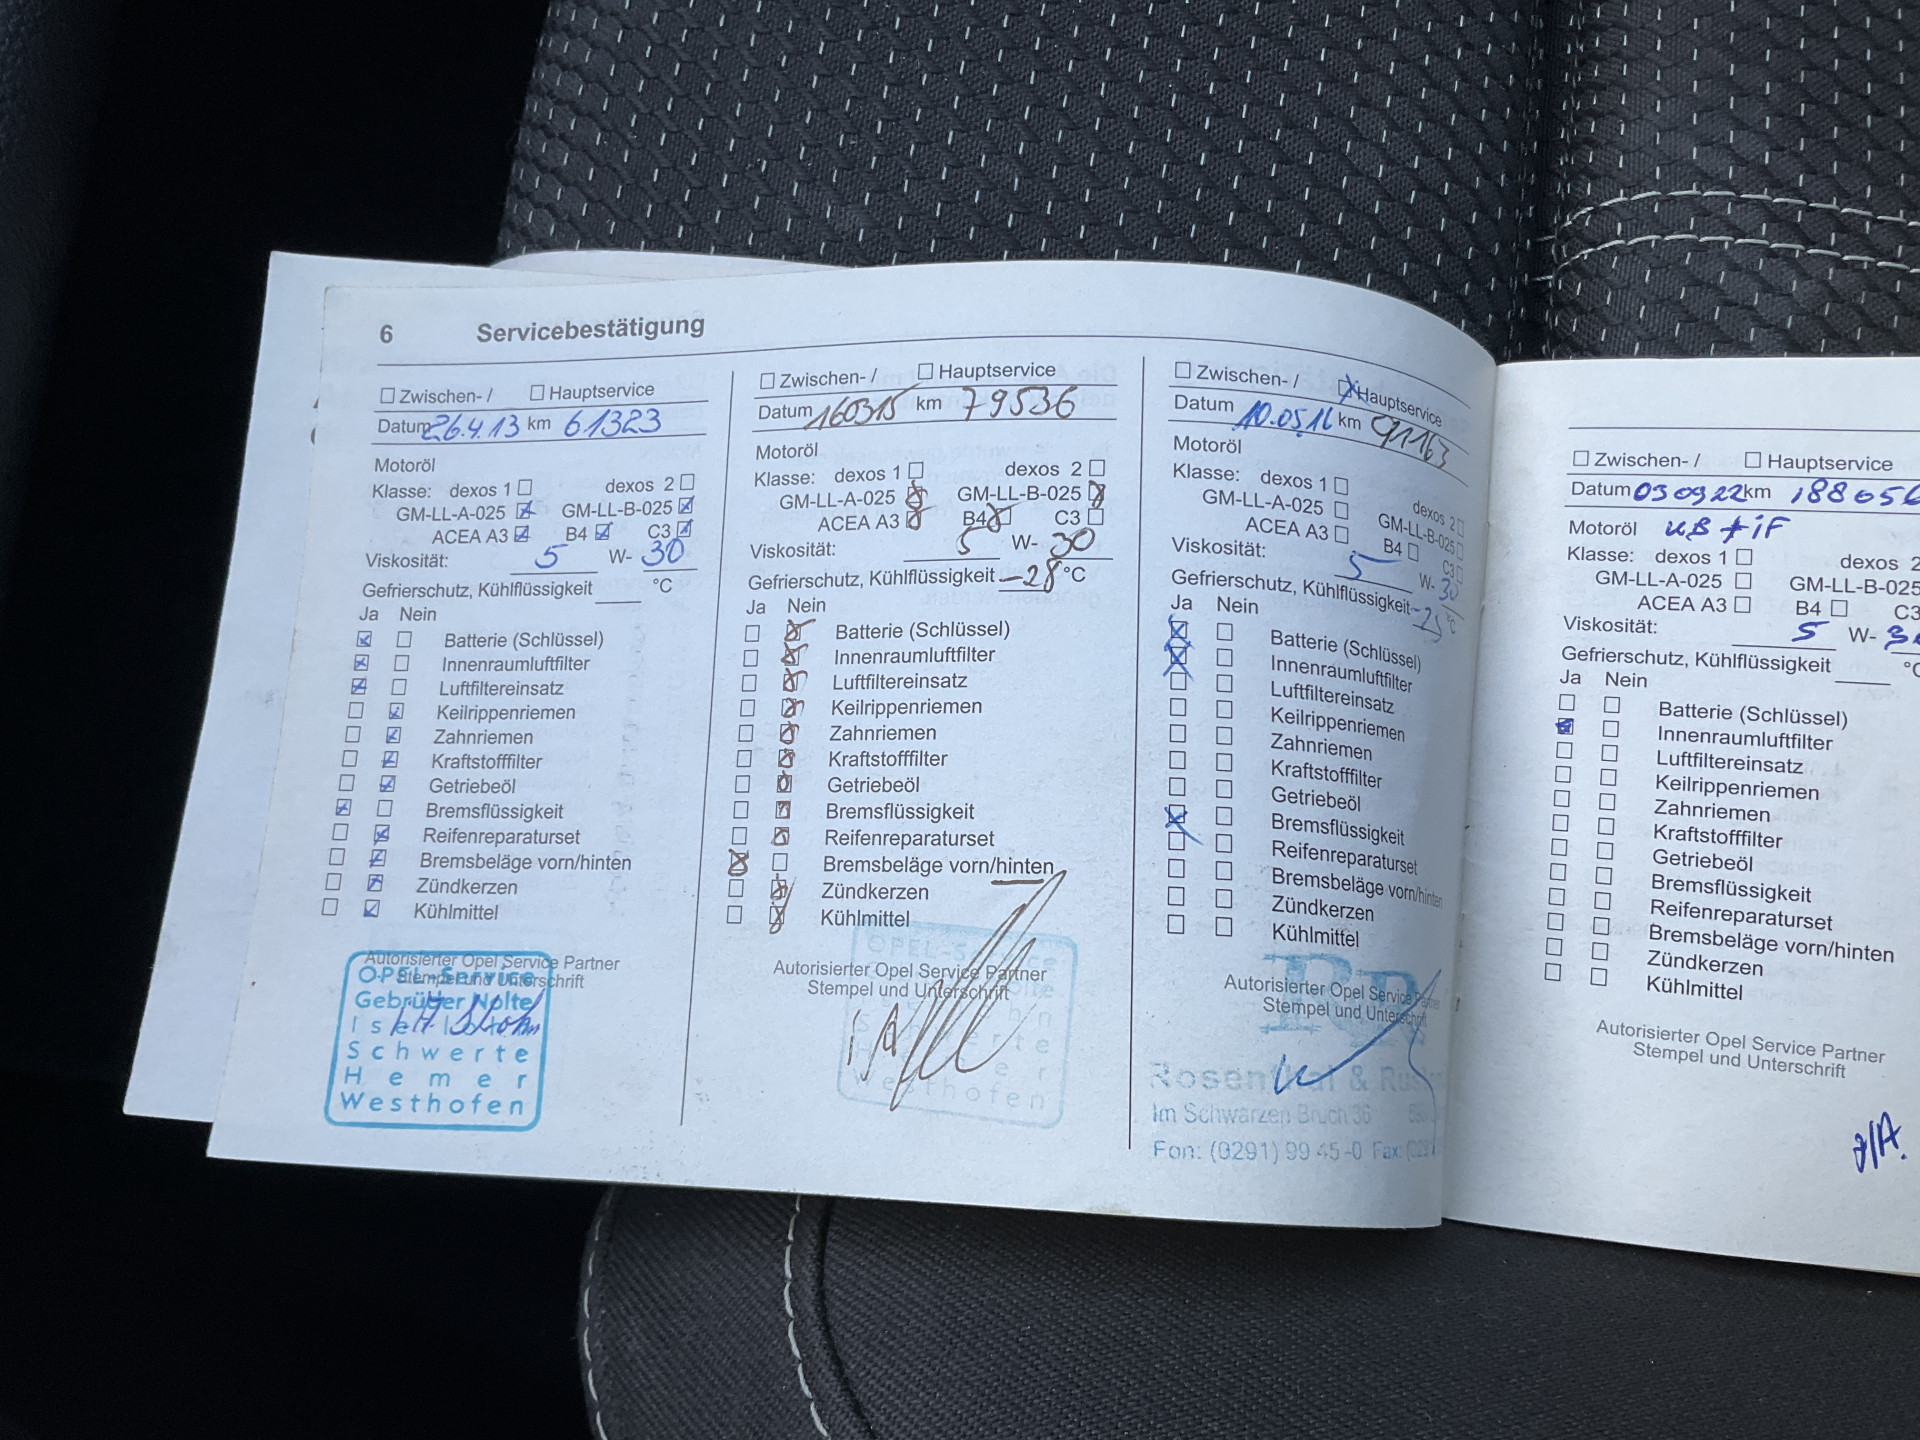 6 Servicebestätigung
Zwischen- / Hauptservice
Datum 26.4.13 km 61323
Motoröl
Klasse: dexos 1 dexos 2
GM-LL-A-025 GM-LL-B-025
ACEA A3 B4 C3
Viskosität: 5 W- 30
Gefrierschutz, Kühlflüssigkeit °C
Ja Nein
Batterie (Schlüssel)
Innenraumluftfilter
Luftfiltereinsatz
Keilrippenriemen
Zahnriemen
Kraftstofffilter
Getriebeöl
Bremsflüssigkeit
Reifenreparaturset
Bremsbeläge vorn/hinten
Zündkerzen
Kühlmittel
Autorisierter Opel Service Partner
Stempel und Unterschrift
OPEL-Service
Gebrüder Nolte
Iserlohn
Schwerte
Hemer
Westhofen
Zwischen- / Hauptservice
Datum 160315 km 79536
Motoröl
Klasse: dexos 1 dexos 2
GM-LL-A-025 GM-LL-B-025
ACEA A3 B4 C3
Viskosität: 5 W- 30
Gefrierschutz, Kühlflüssigkeit -28 °C
Ja Nein
Batterie (Schlüssel)
Innenraumluftfilter
Luftfiltereinsatz
Keilrippenriemen
Zahnriemen
Kraftstofffilter
Getriebeöl
Bremsflüssigkeit
Reifenreparaturset
Bremsbeläge vorn/hinten
Zündkerzen
Kühlmittel
Autorisierter Opel Service Partner
Stempel und Unterschrift
OPEL-Service
Westhofen
Zwischen- / Hauptservice
Datum 10.05.16 km 91163
Motoröl
Klasse: dexos 1 dexos 2
GM-LL-A-025 GM-LL-B-025
ACEA A3 B4 C3
Viskosität: 5 W- 30
Gefrierschutz, Kühlflüssigkeit °C
Ja Nein
Batterie (Schlüssel)
Innenraumluftfilter
Luftfiltereinsatz
Keilrippenriemen
Zahnriemen
Kraftstofffilter
Getriebeöl
Bremsflüssigkeit
Reifenreparaturset
Bremsbeläge vorn/hinten
Zündkerzen
Kühlmittel
Autorisierter Opel Service Partner
Stempel und Unterschrift
Rosenthal &
Im Schwarzen Bruch 36
Fon: (0291) 99 45-0 Fax:
Zwischen- / Hauptservice
Datum 050922 km 188056
Motoröl
Klasse: dexos 1 dexos 2
GM-LL-A-025 GM-LL-B-025
ACEA A3 B4 C3
Viskosität: 5 W-
Gefrierschutz, Kühlflüssigkeit
Ja Nein
Batterie (Schlüssel)
Innenraumluftfilter
Luftfiltereinsatz
Keilrippenriemen
Zahnriemen
Kraftstofffilter
Getriebeöl
Bremsflüssigkeit
Reifenreparaturset
Bremsbeläge vorn/hinten
Zündkerzen
Kühlmittel
Autorisierter Opel Service Partner
Stempel und Unterschrift